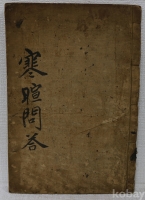 寒暄問答
kobay